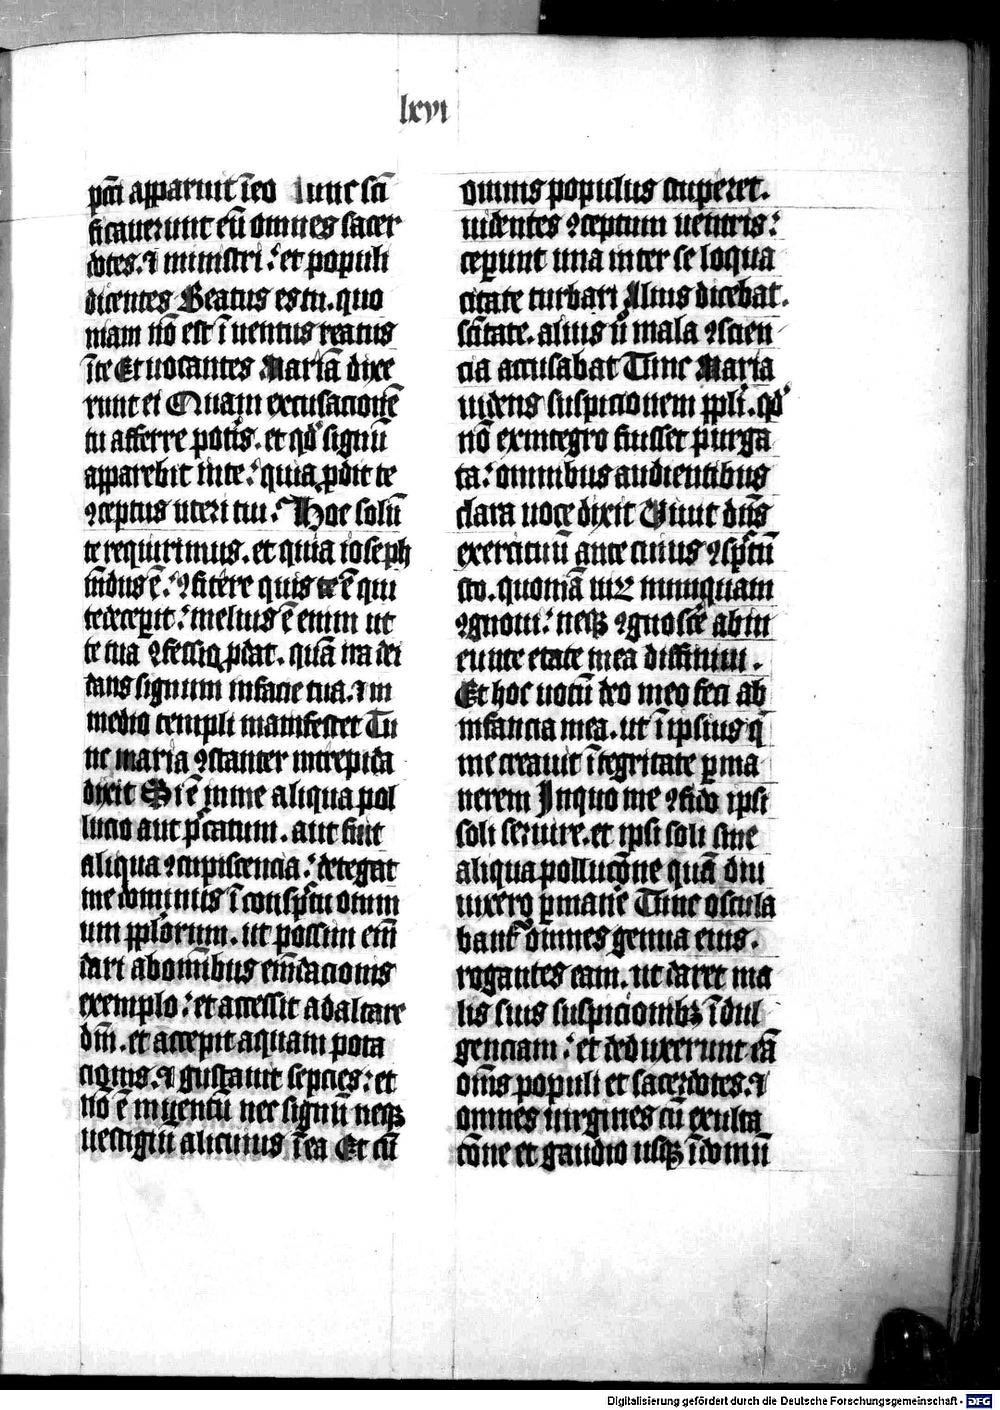 lxvi
pccī apparuit ī eo Tunc scī
ficauerunt eū omnes sacer
dotes. ⁊ ministri: et populi
dicentes Beatus es tu. quo
niam nō est īuentus reatus
ī te Et uocantes Mariā dixe
runt ei Quam excusacionē
tu afferre potīs. et qđ signū
apparebit in te: quia ꝓdit te
ꝯceptus uteri tui: Hoc solū
te requirimus. et quia ioseph
mūdus ē: ꝯfitere quis ē qui
te decepit: melius ē enim ut
te tua ꝯfessio ꝓdat. quā ira dei
dans signum in facie tua. ⁊ in
medio templi manifestet Tu
nc maria ꝯstanter intrepida
dixit Si ē in me aliqua pol
lucio aut pccatum. aut fuit
aliqua ꝯcupiscencia: detegat
me dominus ī conspctu omni
um pplorum. ut possim em̄
dari ab omībus em̄dacionis
exemplo: et accessit ad altare
dn̄i. et accepit aquam pota
cionis. ⁊ gustauit sepcies: et
nō ē inuentū nec signū neqꝫ
uestigiū alicuius ī ea Et cū
omnis populus stuperet.
uidentes ꝯceptum uentris:
ceperunt una inter se loqua
citate turbari Alius dicebat.
scītate. alius ū mala ꝯscien
cia accusabat Tunc Maria
uidens suspicionem ppli. qđ
nō ex integro fuisset purga
ta: omnibus audientibus
clara uoce dixit Viuit dn̄s
exercituū ante cuius ꝯspctū
sto. quoniā uiꝝ nunquam
ꝯgnoui: neqꝫ ꝯgnoscē ab in
eunte etate mea diffiniui.
Et hoc uotū deo meo feci ab
infancia mea. ut ī ipsius q̄
me creauit ītegritate ꝑma
nerem In quo me ꝯfido ipsi
soli seruire. et ipsi soli sine
aliqua pollucōne quā diu
uixero ꝑmanē Tunc oscula
bant̄ omnes genua eius.
rogantes eam. ut daret ma
lis suis suspicionibꝫ īdul
genciam: et deduxerunt eā
om̄s populi et sacerdotes. ⁊
omnes uirgines cū exulta
cōne et gaudio usqꝫ ī domū
Digitalisierung gefördert durch die Deutsche Forschungsgemeinschaft - DFG